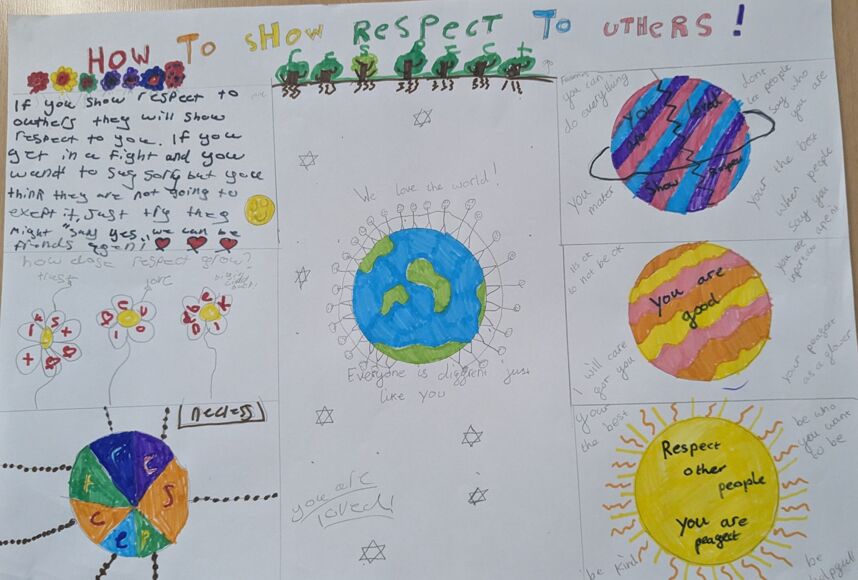 HOW TO SHOW RESPECT TO OTHERS!
r e s p e c t
If you show respect to
outhers they will show
respect to you. If you
get in a fight and you
want to say sorry but you
think they are not going to
except it, just try they
might "say yes, we can be
friends agen!
how dose respect grow?
trust
r e s p e c t
We love the world!
Everyone is diggrent just
like you
you are
loved!
you can
do everything
dont
let people
say who
you are
You are loved
show respect
You
mater
your the best
when people
say you
you are
its ok
to not be ok
You are
good
I will care
gor you
your peagect
as a glower
your
the best
be who
you want
to be
Respect
other
people
You are
peagect
be kind
be